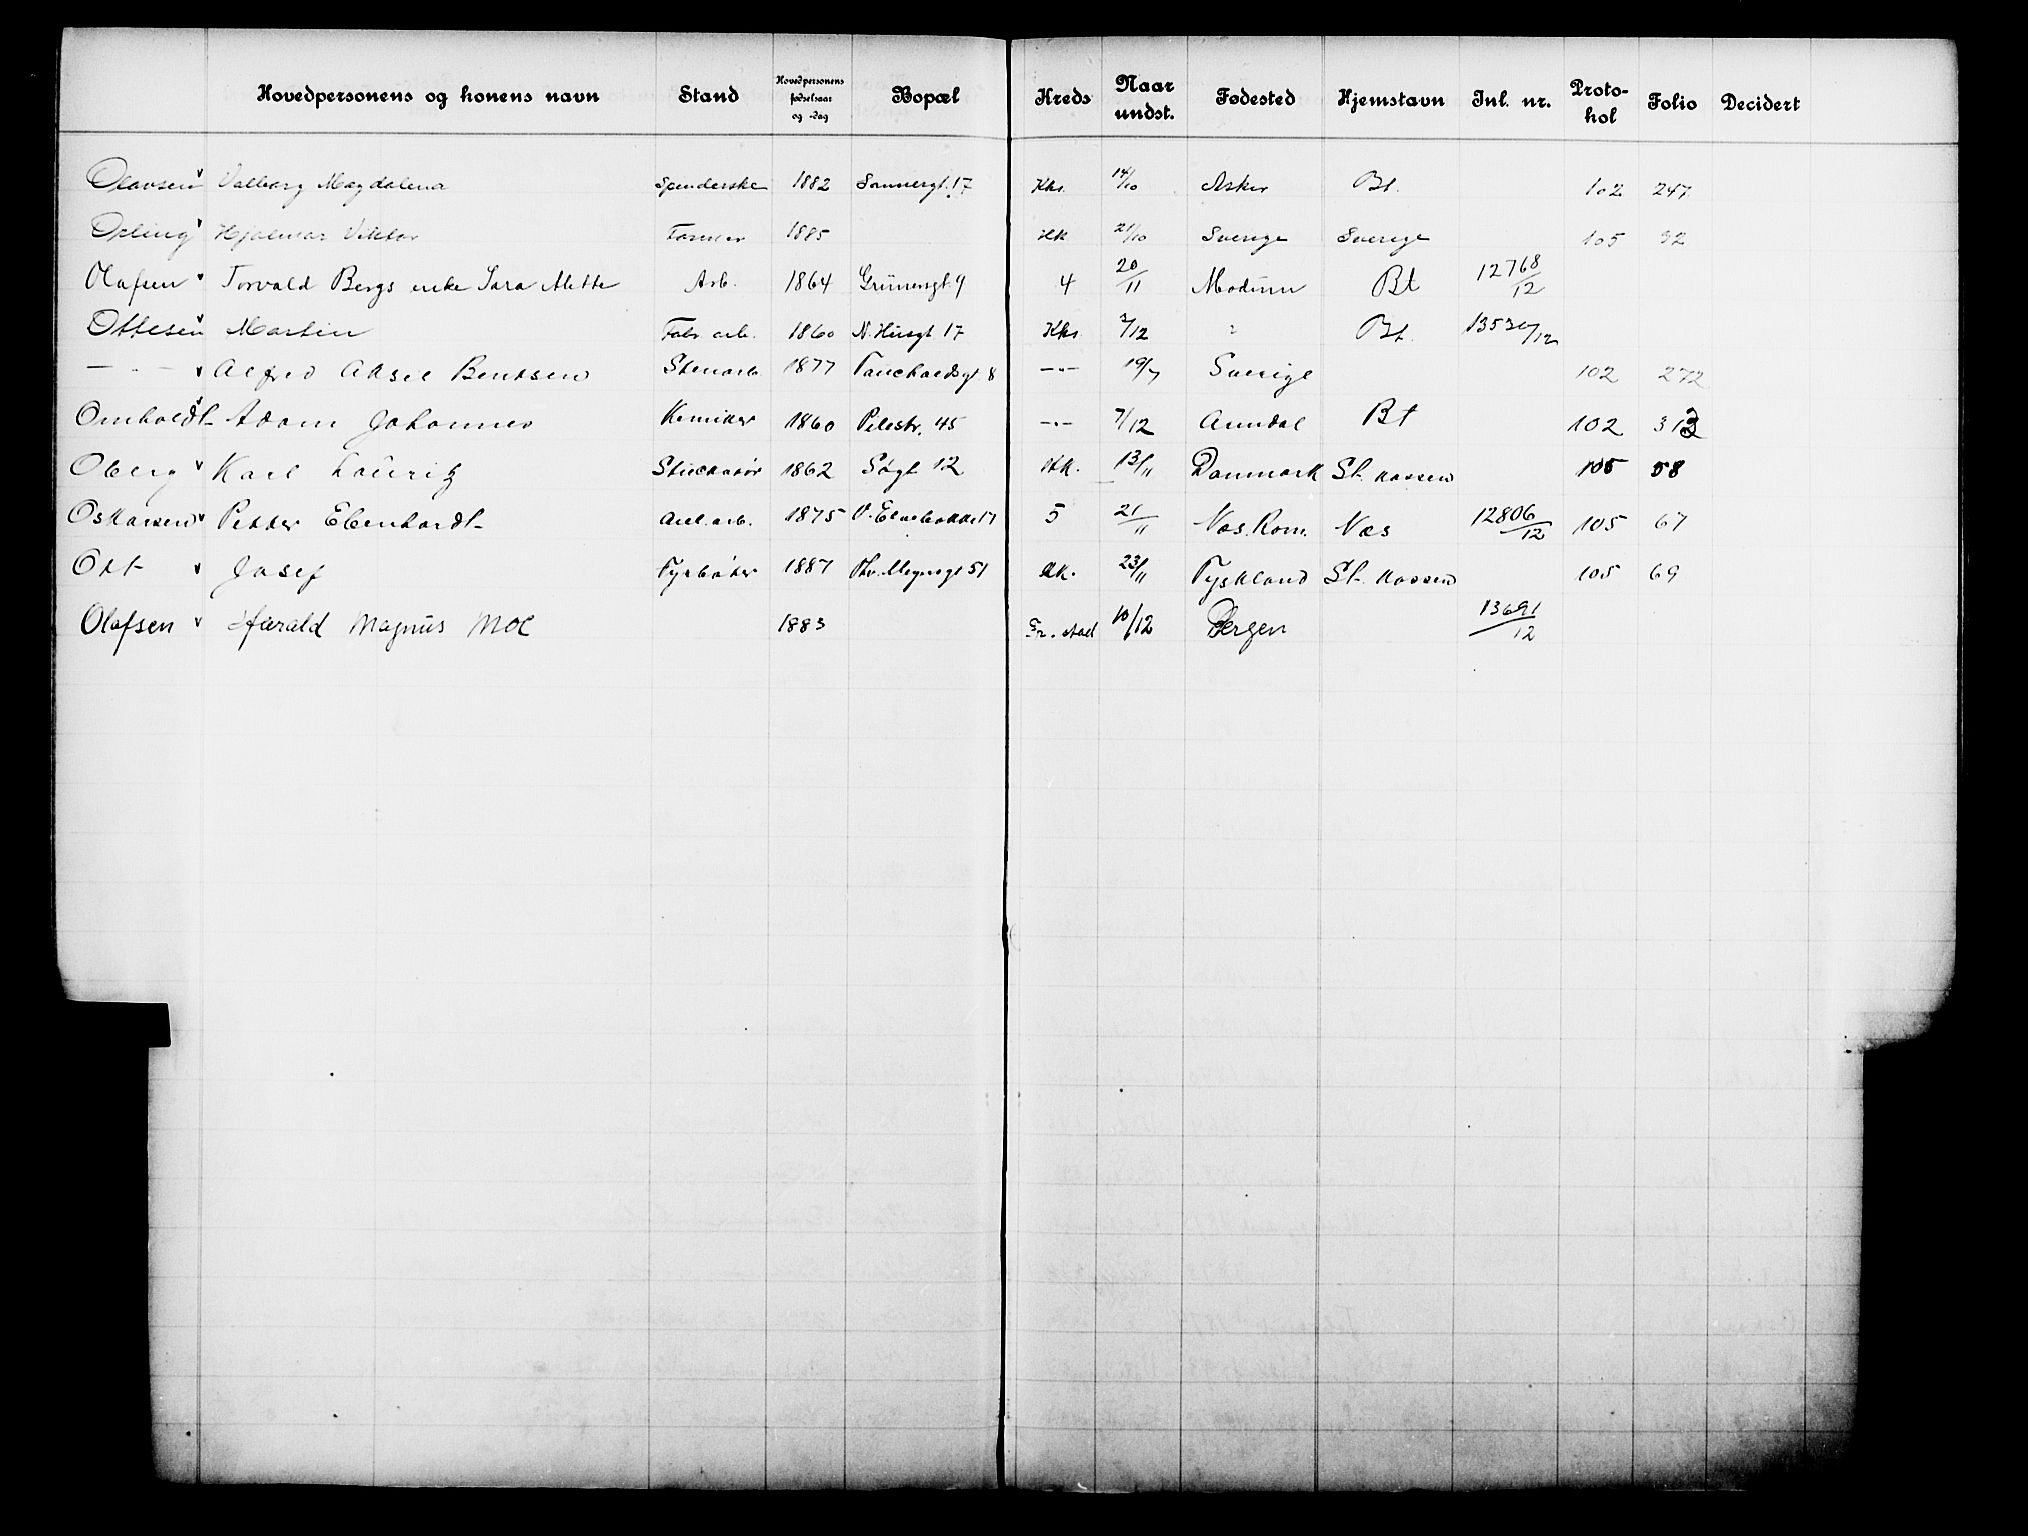 Hovedpersonens og konens navn Stand Hovedpersonens fødselsaar og -dag Bopæl Kreds Naar undst. Fødested Hjemstavn Jnl. nr. Protokol Folio Decidert
Olavsen Valborg Magdalena Spinderske 1882 Sannergt. 17 Kks. 14/10 Asker Bt. 102 247
Hjalmar Viktor 1885 21/10 Sverige Sverige 105 32
Olafsen Torvald Bergs enke Sara Mette Arb. 1864 Grünersgt 9 4 20/11 Modum Bt 12768/12
Ottesen Martin Fabr. arb. 1860 17 Kks. 2/12 " Bt.
— " — Alfred Aksel Bentsen Stenarb 1877 8 —"— 19/7 Sverige 102 272
Omholdt Adam Johannes Kemiker 1860 Pilestr. 45 —"— 7/12 Arendal Bt 102 313
Oberg Karl Lauritz Stuckatør 1862 Søgt 12 13/11 Danmark St. kassen 105 58
Oskarsen Petter Ebenhardt 1875 5 21/11 Næs. Rom. Næs 12806/12 105 67
Ott Josef Fyrbøter 1887 Thv. Meyersgt 51 23/11 Tyskland St. kassen 105 69
Olafsen Harald Magnus Moe 1883 10/12 Bergen 13691/12